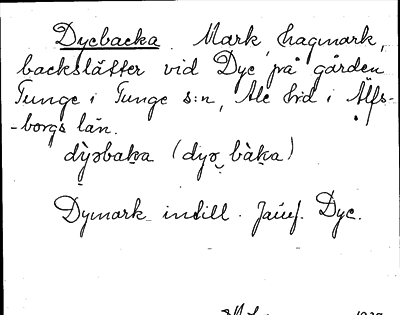 Dyebacka. Mark, hagmark,
backslåtter vid Dye på gården
Tunge i Tunge s:n, Ale hd i Älfs-
-borgs län.
dy̆əbaka (dyə bàka)
Dymark intill. Jämf. Dye.